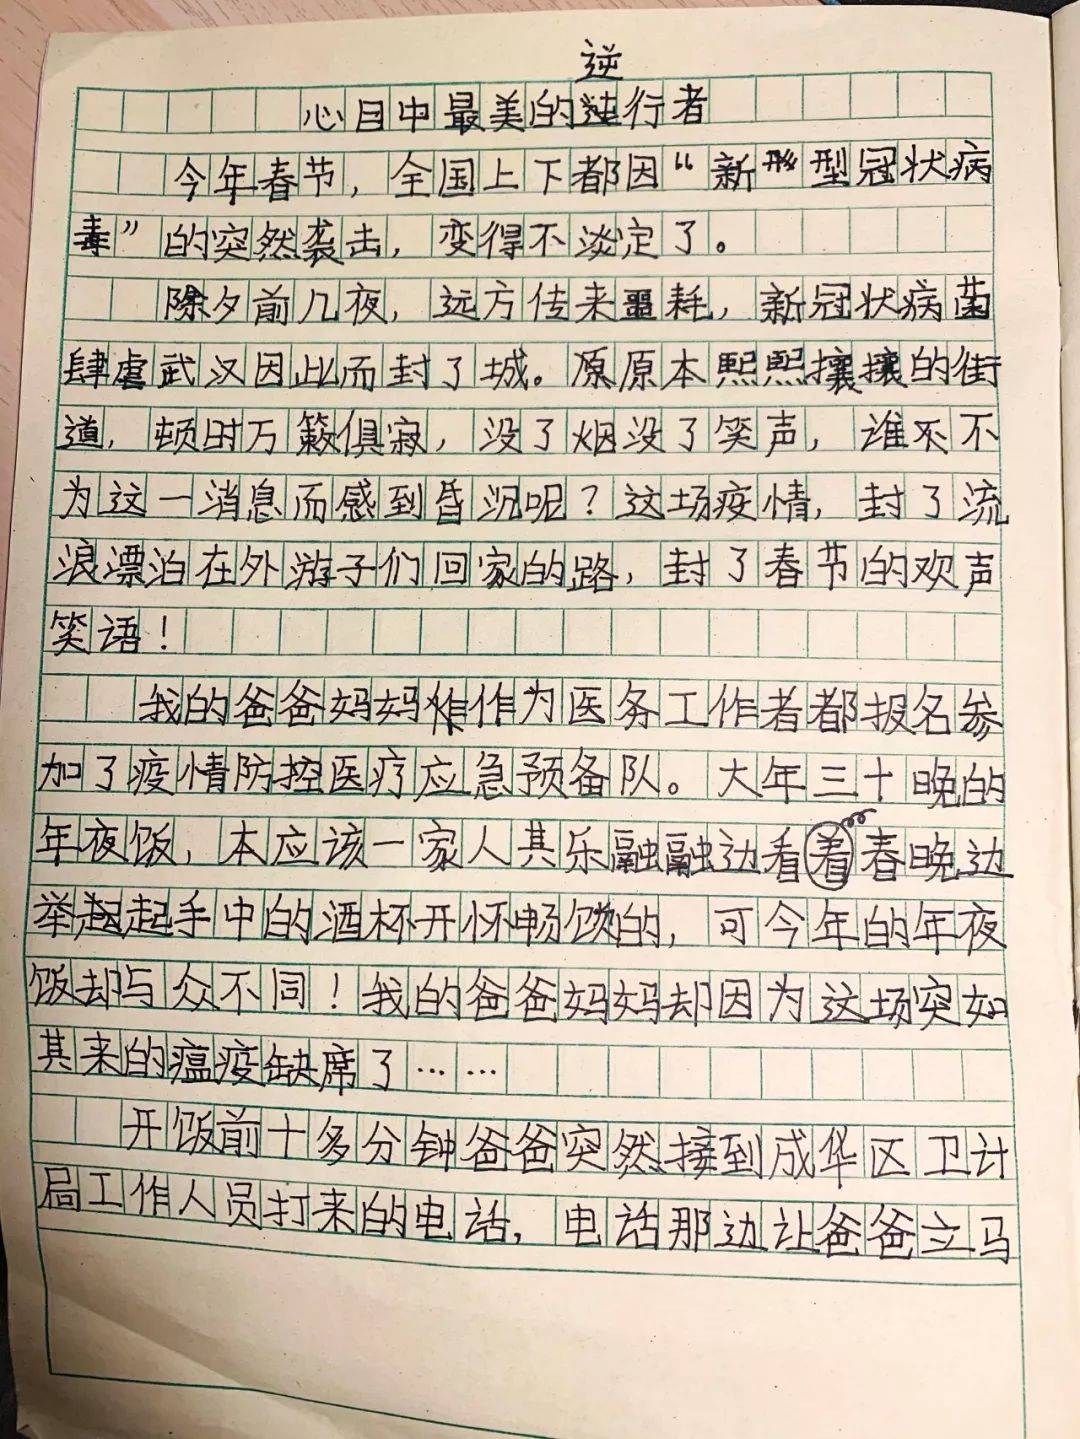 逆
心目中最美的行者
今年春节，全国上下都因“新型冠状病
毒”的突然袭击，变得不淡定了。
除夕前几夜，远方传来噩耗，新冠状病菌
肆虐武汉因此而封了城。原原本熙熙攘攘的街
道，顿时万籁俱寂，没了烟没了笑声，谁不不
为这一消息而感到昏沉呢？这场疫情，封了流
浪漂泊在外游子们回家的路，封了春节的欢声
笑语！
我的爸爸妈妈作为医务工作者都报名参
加了疫情防控医疗应急预备队。大年三十晚的
年夜饭，本应该一家人其乐融融边看着春晚边
举起起手中的酒杯开怀畅饮的，可今年的年夜
饭却与众不同！我的爸爸妈妈却因为这场突如
其来的瘟疫缺席了……
开饭前十多分钟爸爸突然接到成华区卫计
局工作人员打来的电话，电话那边让爸爸立马